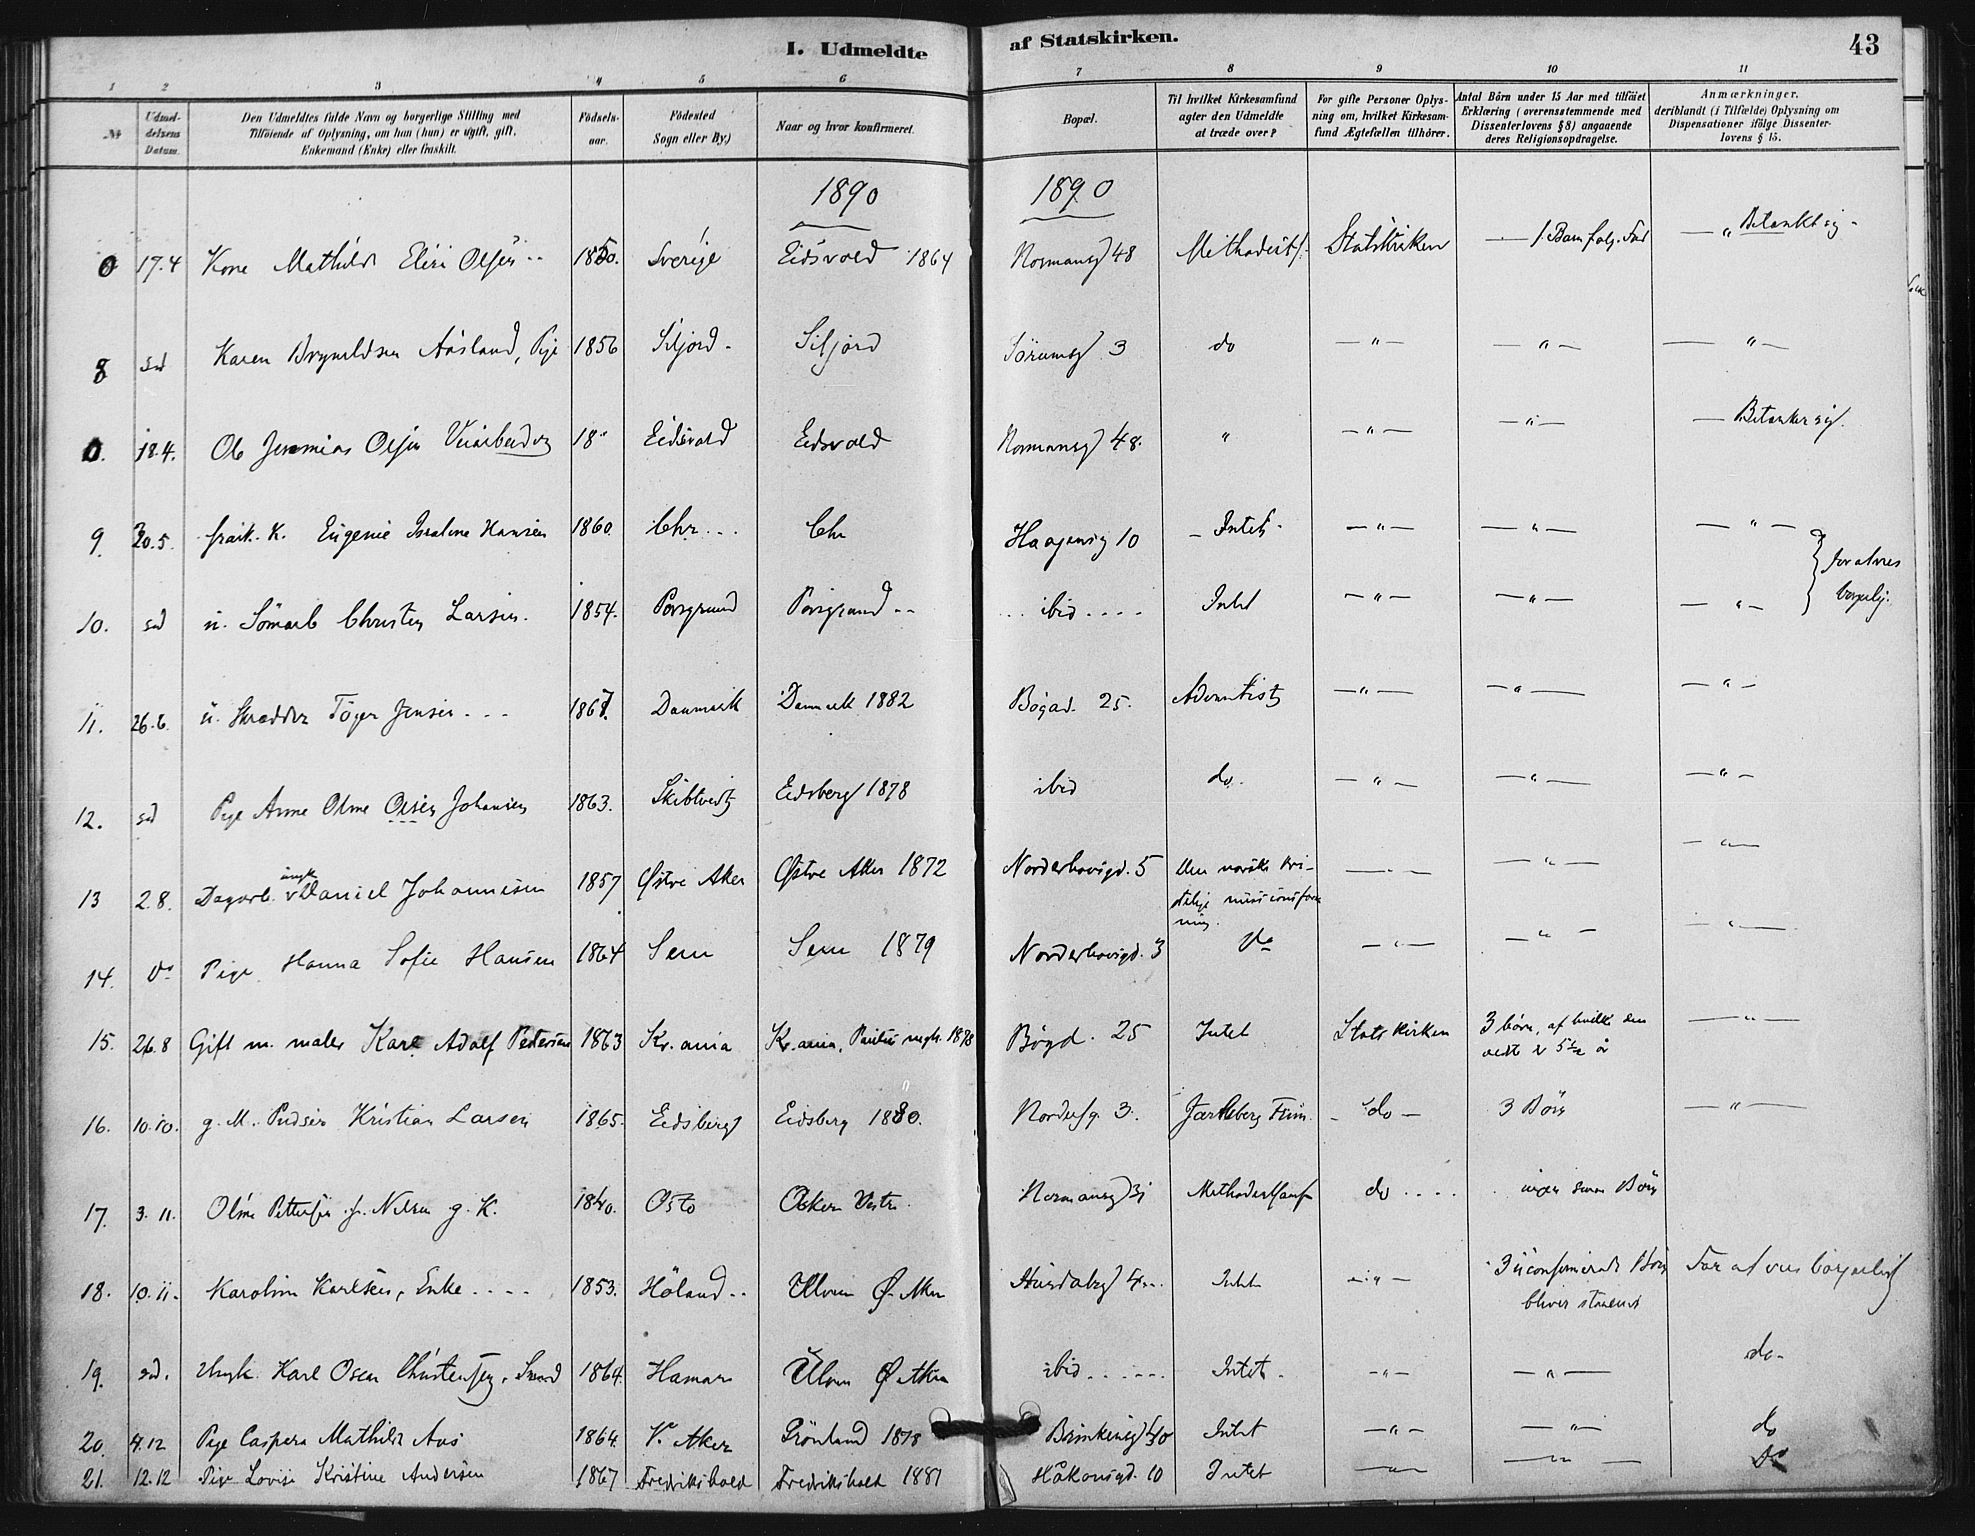 I. Udmeldte af Statskirken. 43
1 2 3 4 5 6 7 8 9 10 11
№ Udmeldelsens Datum. Den Udmeldtes fulde Navn og borgerlige Stilling med Tilføiende af Oplysning, om han (hun) er ugift, gift, Enkemand (Enke) eller fraskilt. Fødselsaar. Fødested Sogn eller By.) Naar og hvor konfirmeret. Bopæl. Til hvilket Kirkesamfund agter den Udmeldte at træde over? For gifte Personer Oplysning om, hvilket Kirkesamfund Ægtefællen tilhører. Antal Børn under 15 Aar med tilføiet Erklæring (overensstemmende med Dissenterlovens § 8) angaaende deres Religionsopdragelse. Anmærkninger. deriblandt (i Tilfælde) Oplysning om Dispensationer ifølge Dissenterlovens § 15.
1890 1890
0 17.4 Kone Mathilde Olsen 1850. Sverige Eidsvold 1864 Normansg 48 Methodist Statskirken 1 Barn følg. Far — " Betænkt sig
8 sd Karen Brynildsen Aasland, Pige 1856 Siljord Siljord Sörumsg 3 do — " — — " — — " —
0. 18.4. Ole Jeremias Olsen 18" Eidsvold Eidsvold Normansg 48. " — " — — " — — Betænker sig.
9. 20.5. frask. K. Eugenie Hansen 1860 Chr... Chr Haagensg 10 — Intet — " — — " — — " —
10. sd u. Christen Larsen. 1854. Porsgrund Porsgrund .. ... ibid .... Intet — " — — " — — " — } for at vies borgerlig.
11. 26.6. u. Skrædder Töger Jensen ... 1867. Danmark Danmark 1882 Bögad. 25. Adventist — " — — " — — " —
12. sd Pige Anne Olsen Johansen 1863. Skibtvedt Eidsberg 1878 ibid do. — " — — " — — " —
13 2.8. Dagarb. ungk Daniel Johannesen 1857 Østre Aker Østre Aker 1872 Norderhovsgd. 5 Den norske kristelige missionsforening. — " — — " — — " —
14. do Pige Hanna Sofie Hansen 1864 Sem Sem 1879 Norderhovsgd. 3 do — " — — " — — " —
15. 26.8 Gift m. maler Karl Adolf Pedersen 1863 Kr.ania Kr.ania, Paulus mgh. 1878 Bögd. 25 Intet Statskirken 3 börn, af hvilke den ældste er 5 ½ år — " —
16. 10.10. g. M. Pudser Kristian Larsen 1865. Eidsberg Eidsberg 1880. 3. Jarlsberg — do — 3 Börn — " —
17. 3.11. Pettersen f. Nilsen g. K. 1840. Oslo Asker Vestre Normansg 31 Methodistsamf do .... ingen Börn
18. 10.11. Karoline Karlsen, Enke .... 1853. Höland .. Ulven Ø. Aker 4 ... Intet — " — 3 uconfirmerede Börn bliver staaende For at vies borgerligt
19. sd. Ungk. Karl Oscar Christensen, 1864. Hamar Ulven Ø. Aker ibid ...... Intet. — " — — " — do
20. 4.12 Pige Caspara Mathilde Aas 1864. V. Aker Grönland 1878 Brinkensg 40 Intet — " — — " — do
21. 12.12 Pige Lovise Kristine Andersen 1867 Fredrikshald Fredrikshald 1881 Håkonsgd. 10 Intet — " — — " — do